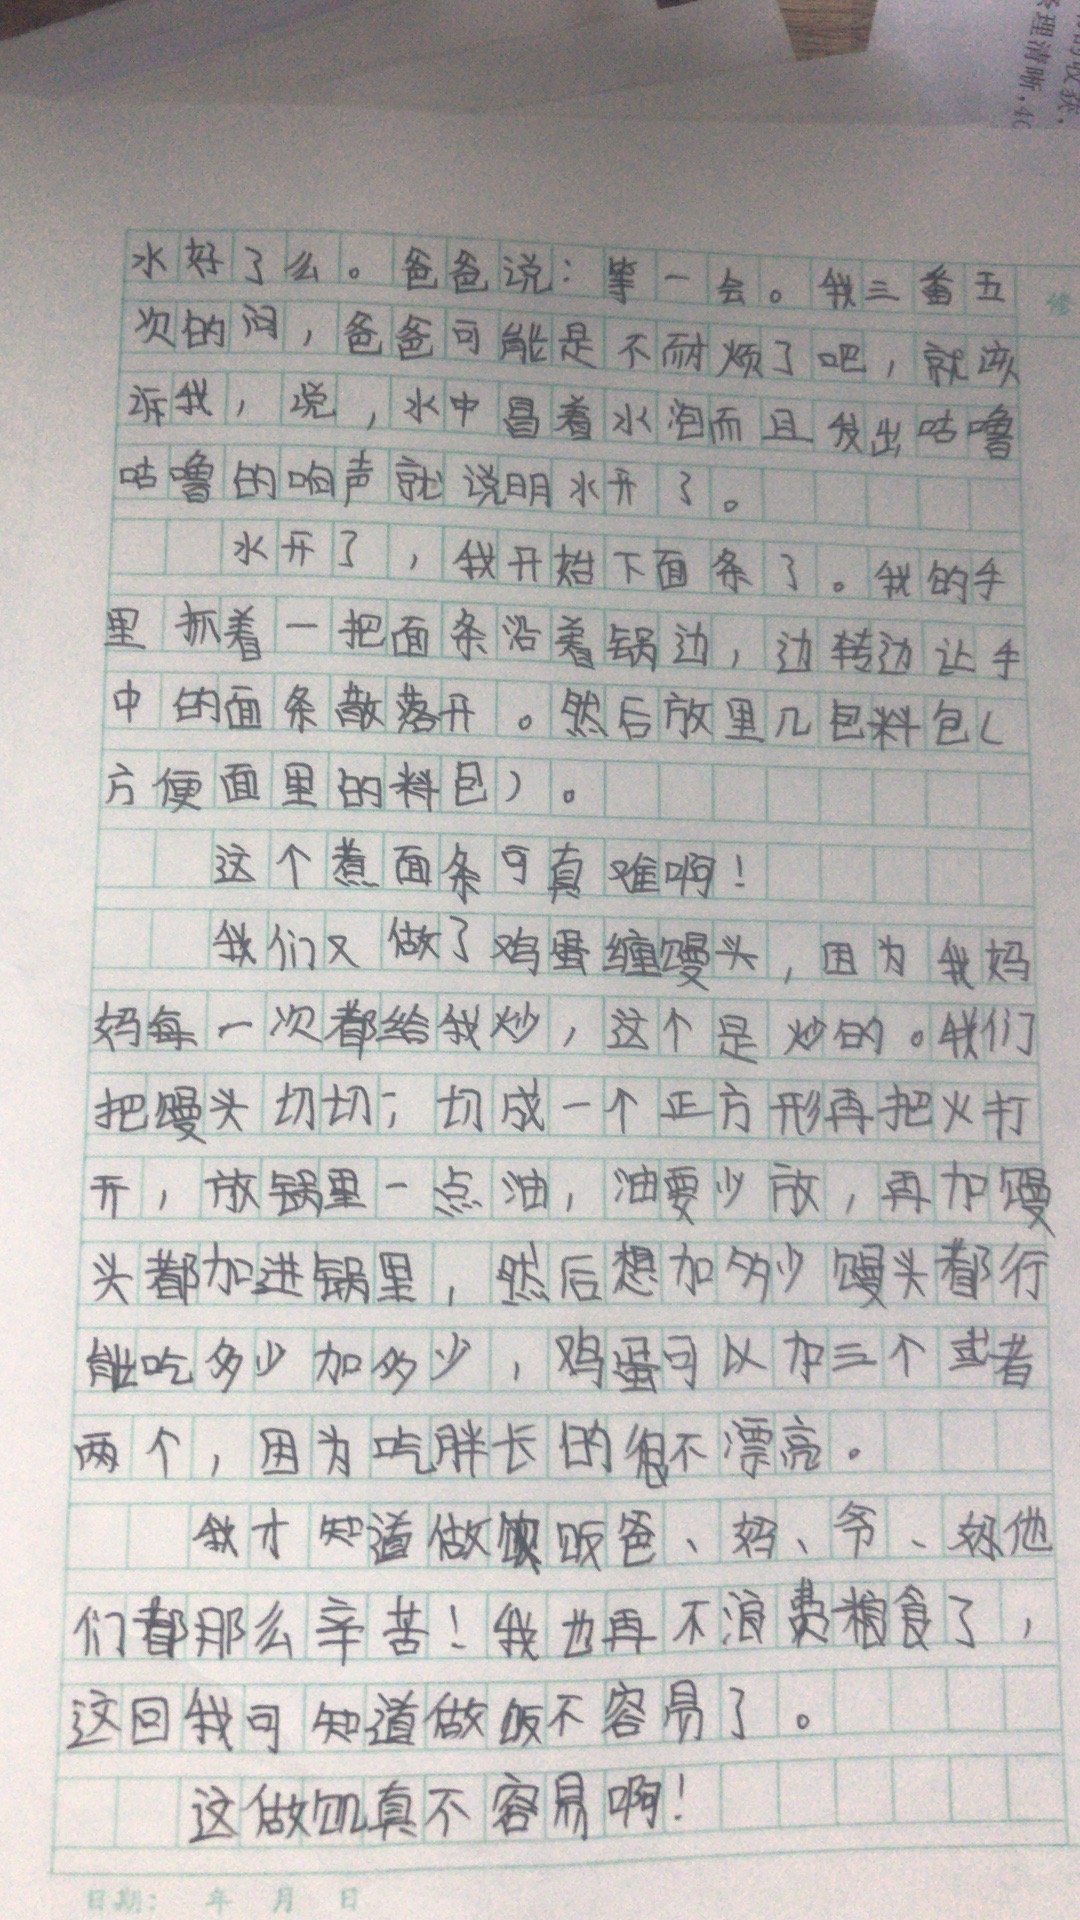 理清晰,40
的收获,
水好了么。爸爸说:等一会。我三番五
修
次的问,爸爸可能是不耐烦了吧,就
诉我,说,水中冒着水泡而且发出咕噜
咕噜的响声就说明水开了。
水开了,我开始下面条了。我的手
里抓着一把面条沿着锅边,边转边让手
中的面条散落开。然后放里几包料包(
方便面里的料包)。
这个煮面条可真难啊!
我们又做了鸡蛋缠馒头,因为我妈
妈每一次都给我炒,这个是炒的。我们
把馒头切切;切成一个正方形再把火打
开,放锅里一点油,油要少放,再加馒
头都加进锅里,然后想加多少馒头都行
能吃多少加多少,鸡蛋可以加三个或者
两个,因为吃胖长的很不漂亮。
我才知道做饭爸、妈、爷、奶他
们都那么辛苦!我也再不浪费粮食了,
这回我可知道做饭不容易了。
这做饥真不容易啊!
日期: 年 月 日